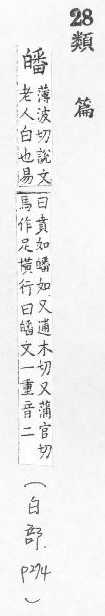 28類篇
皤
薄波切說文
老人白也易
曰賁如皤如又逋木切又蒲官切
馬作足橫行曰皤文一重音二
(白部. P274)